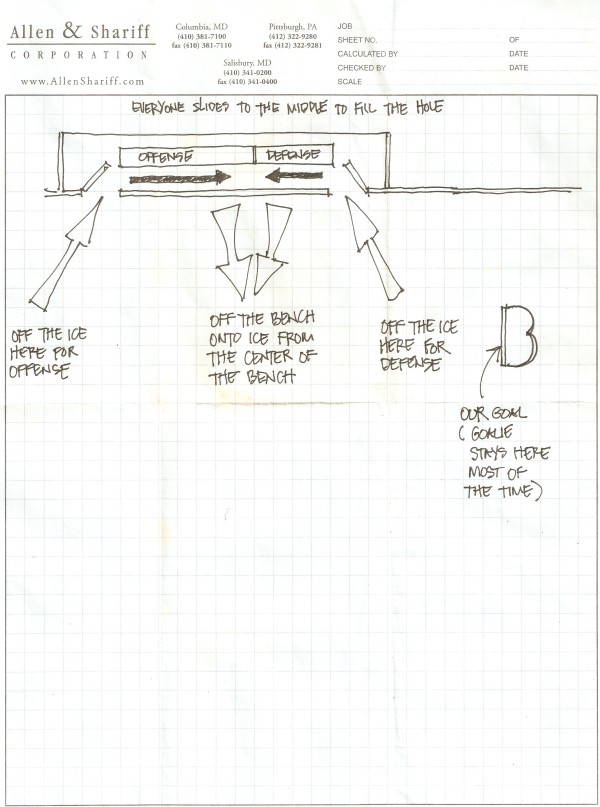 Allen & Shariff
CORPORATION
www.AllenShariff.com
Columbia, MD
(410) 381-7100
fax (410) 381-7110
Pittsburgh, PA
(412) 322-9280
fax (412) 322-9281
Salisbury, MD
(410) 341-0200
fax (410) 341-0400
JOB
SHEET NO. OF
CALCULATED BY DATE
CHECKED BY DATE
SCALE
EVERYONE SLIDES TO THE MIDDLE TO FILL THE HOLE
OFFENSE DEFENSE
OFF THE ICE
HERE FOR
OFFENSE
OFF THE BENCH
ONTO ICE FROM
THE CENTER OF
THE BENCH
OFF THE ICE
HERE FOR
DEFENSE
OUR GOAL
(GOALIE
STAYS HERE
MOST OF
THE TIME)